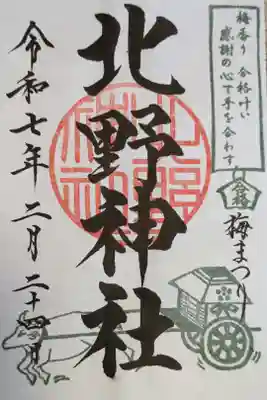 梅香り 合格叶い
感謝の心で手を合わす
合格
梅まつり
北野神社
令和七年二月二十四日